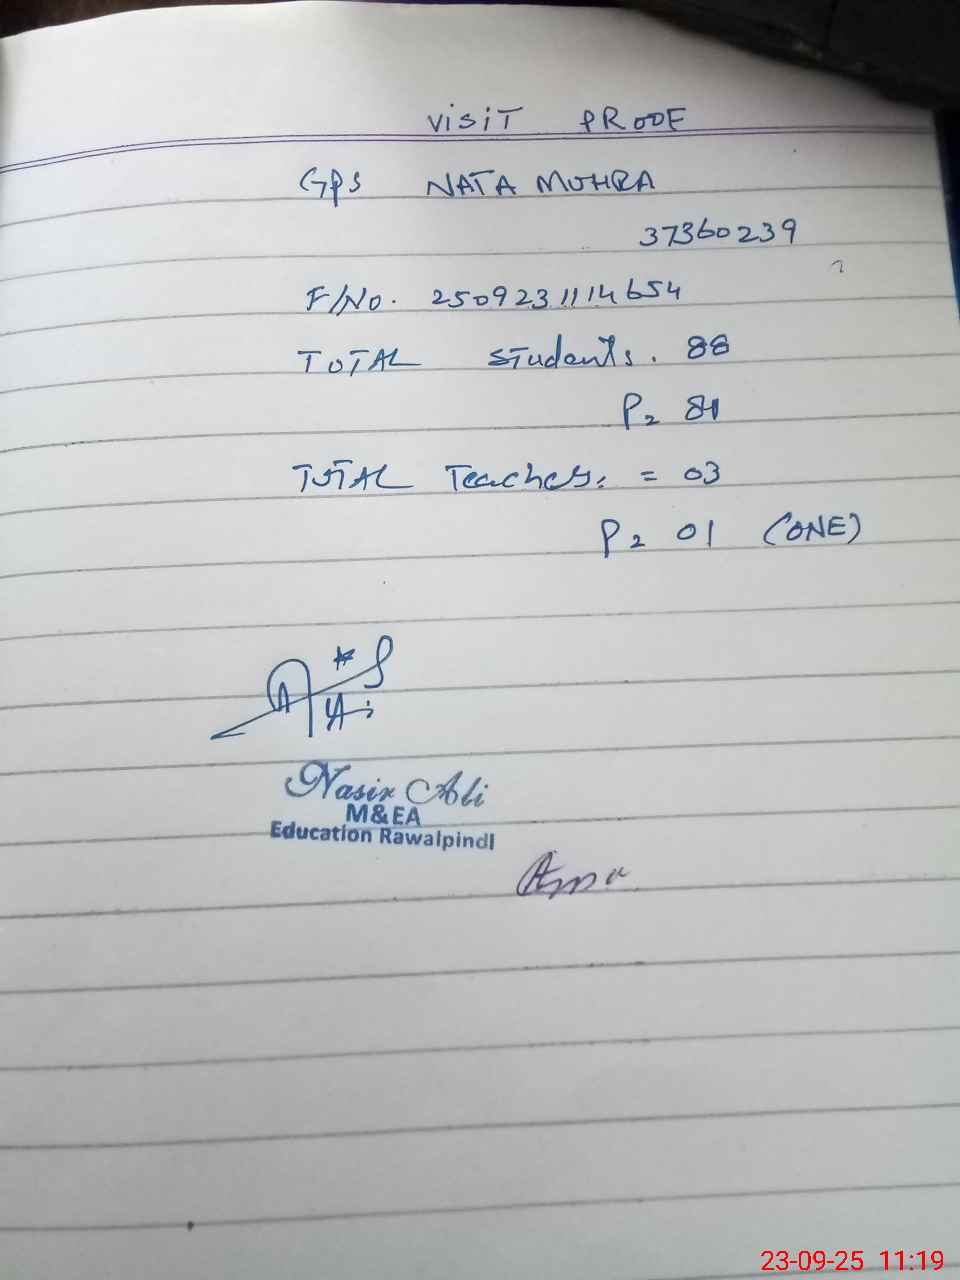 VISIT PROOF
GPS NATA MOHRA
37360239
F/No. 2509231114654
TOTAL Students. 88
P2
TOTAL Teachers. = 03
P2 01 (ONE)
Nasir Ali
M&EA
Education Rawalpindi
23-09-25 11:19